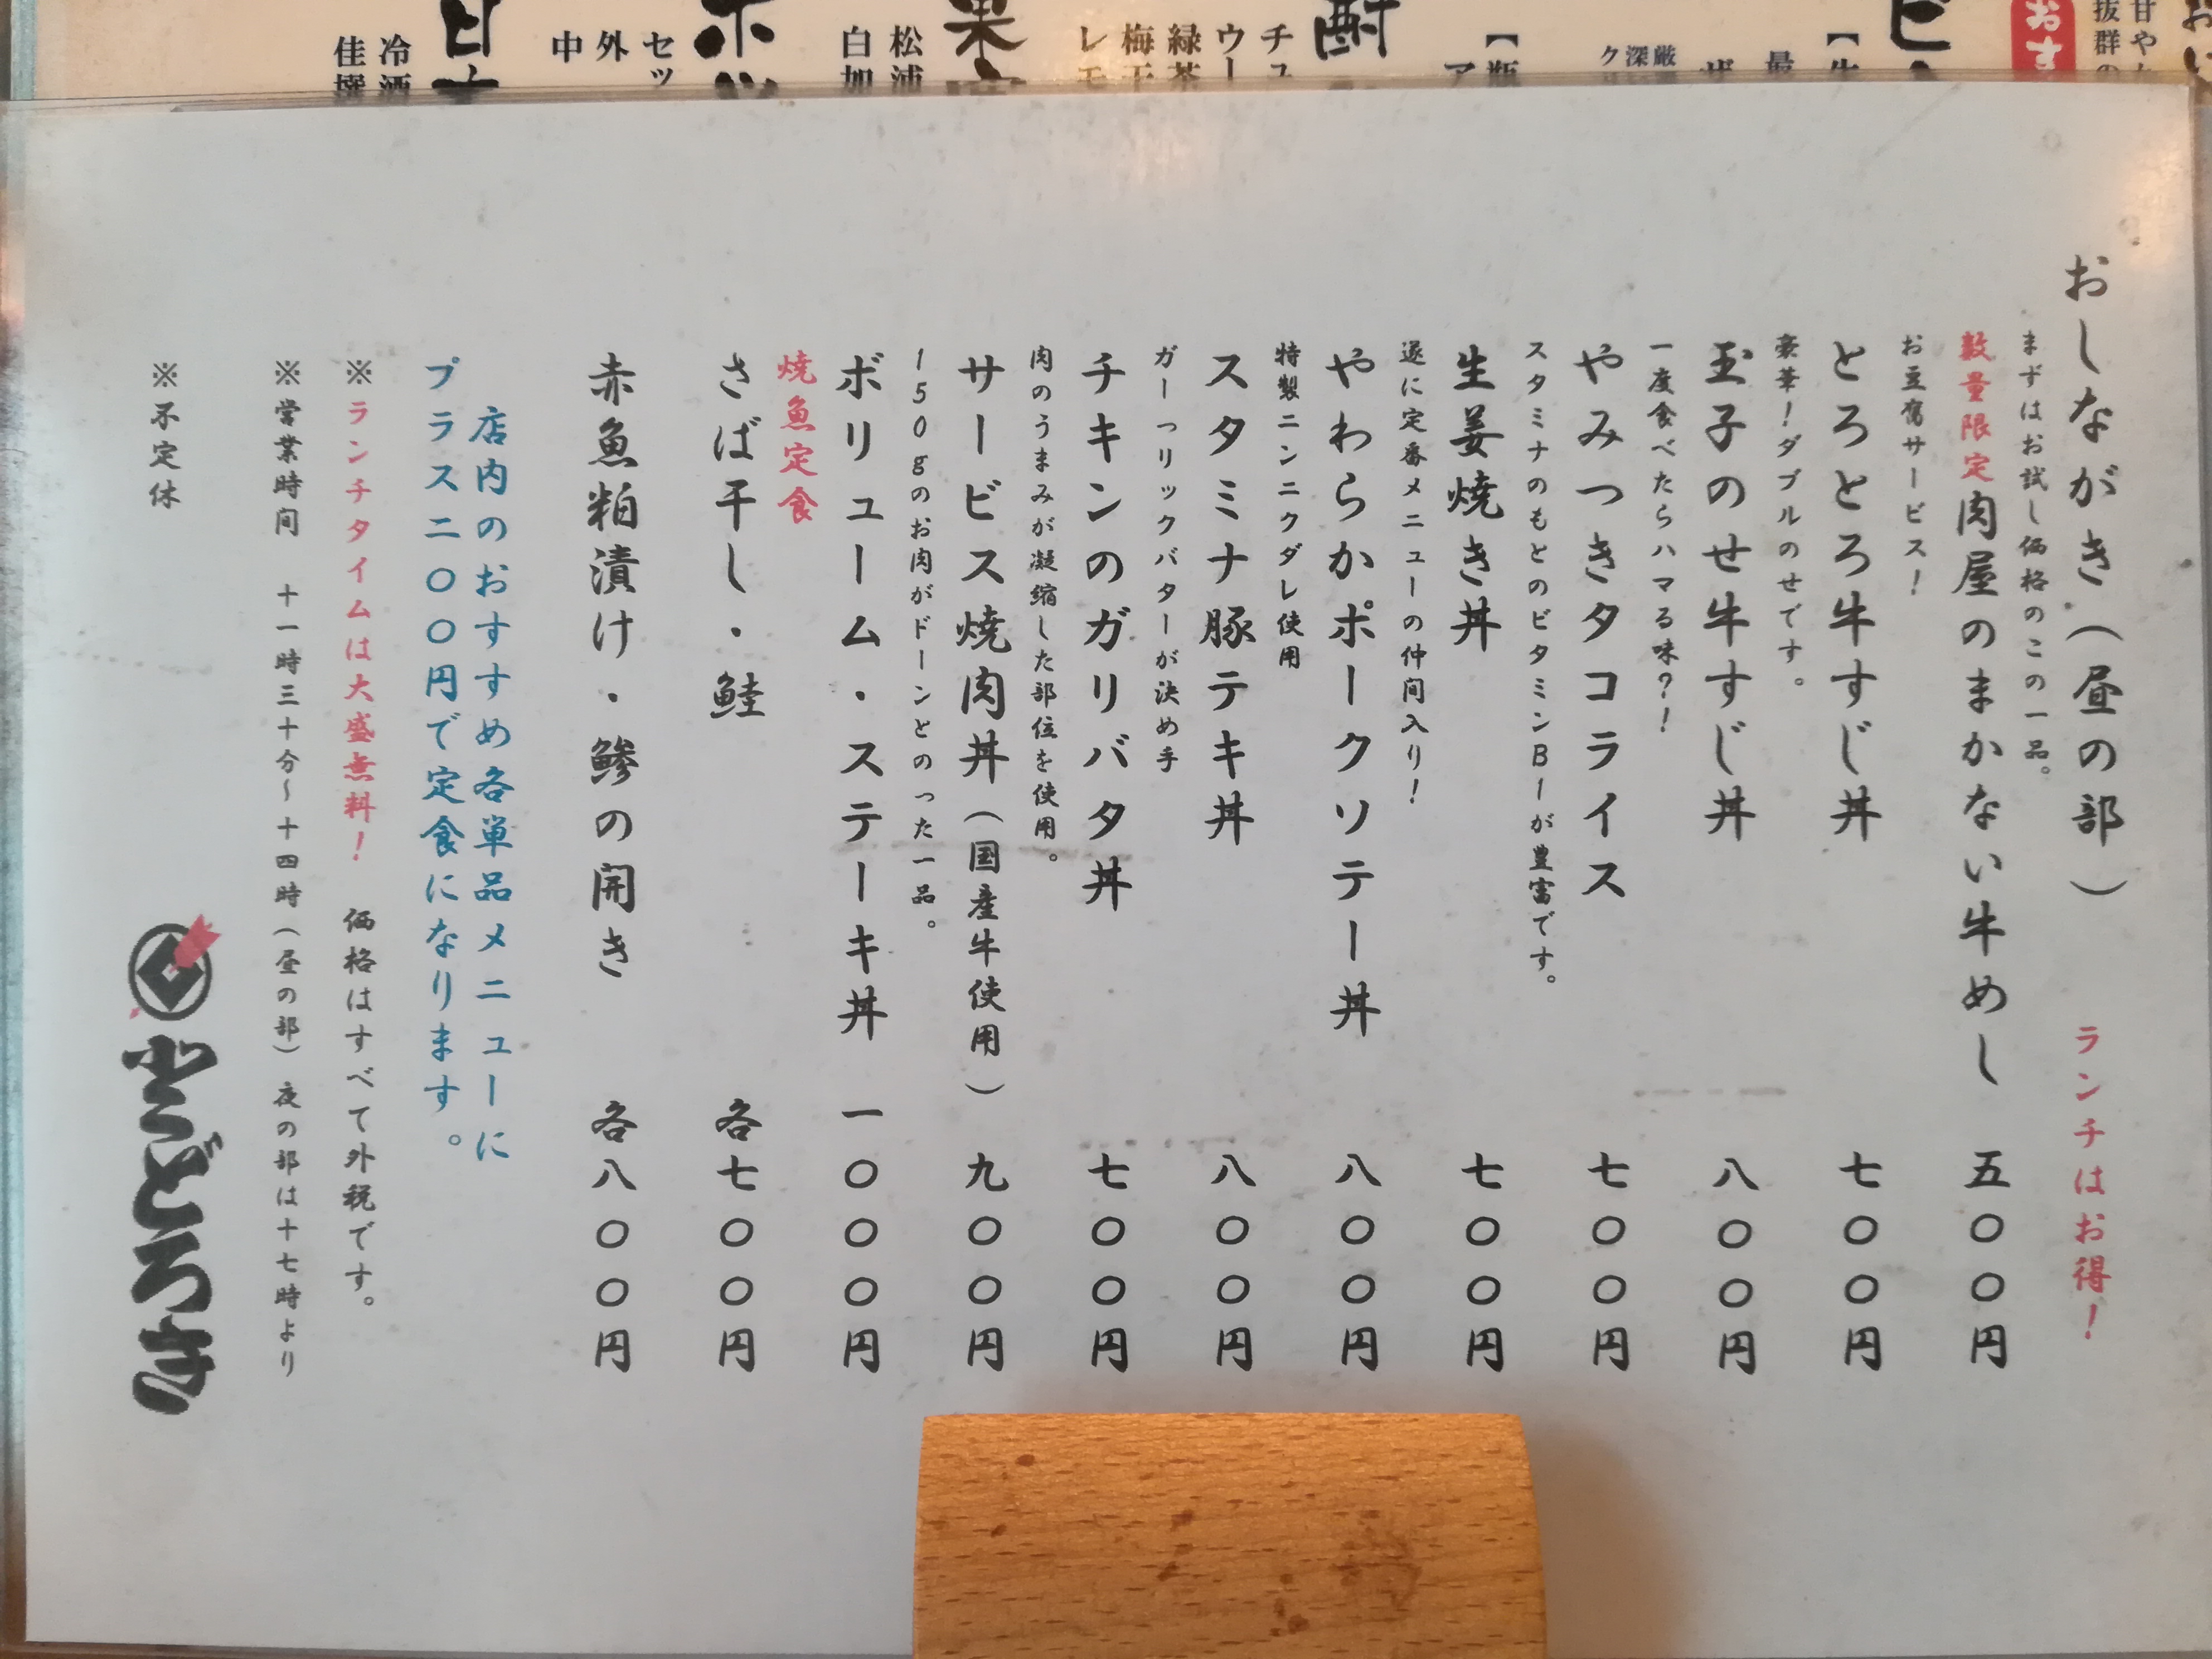 おしながき（昼の部）　ランチはお得！
まずはお試し価格のこの一品。
数量限定肉屋のまかない牛めし　五〇〇円
お豆腐サービス！
とろとろ牛すじ丼　七〇〇円
豪華！ダブルのせです。
玉子のせ牛すじ丼　八〇〇円
一度食べたらハマる味？！
やみつきタコライス　七〇〇円
スタミナのもとのビタミンB1が豊富です。
生姜焼き丼　七〇〇円
遂に定番メニューの仲間入り！
やわらかポークソテー丼　八〇〇円
特製ニンニクダレ使用
スタミナ豚テキ丼　八〇〇円
ガーっリックバターが決め手
チキンのガリバタ丼　七〇〇円
肉のうまみが凝縮した部位を使用。
サービス焼肉丼（国産牛使用）　九〇〇円
150gのお肉がドーンとのった一品。
ボリューム・ステーキ丼　一〇〇〇円
焼魚定食
さば干し・鮭　各七〇〇円
赤魚粕漬け・鯵の開き　各八〇〇円
店内のおすすめ各単品メニューに
プラス二〇〇円で定食になります。
※ランチタイムは大盛無料！　価格はすべて外税です。
※営業時間　十一時三十分〜十四時（昼の部）夜の部は十七時より
※不定休
おす
抜群の
【瓶
チュ
ウー
緑茶
梅干
レモ
松浦
白加
セッ
外
中
冷酒
佳撰